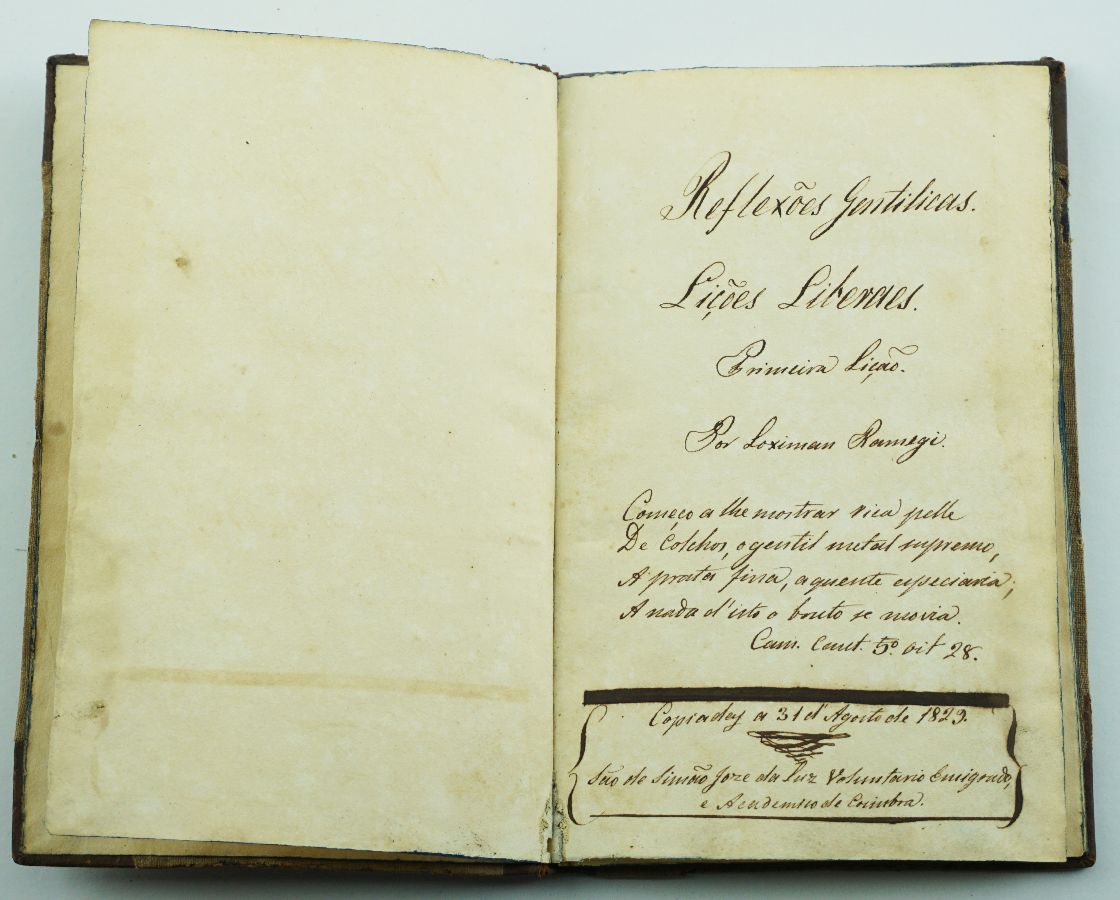 Reflexões Gentilicas.
Lições Liberaes.
Primeira Lição.
Por Loximan Ramegi.
Começo a lhe mostrar rica pelle
De Colchos, o gentil metal supremo,
A prata fina, a quente especiaria;
A nada d'isto o bruto se movia.
Cam. Cant. 5.º oit 28.
Copiadas a 31 d'Agosto de 1829.
São de Simão Joze da Luz Voluntario Emigrado,
e Academico de Coimbra.